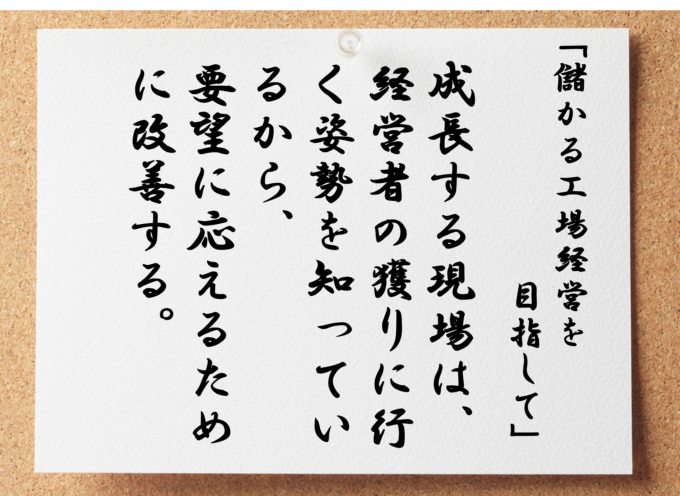 「儲かる工場経営を
目指して」
成長する現場は、
経営者の獲りに行
く姿勢を知ってい
るから、
要望に応えるため
に改善する。